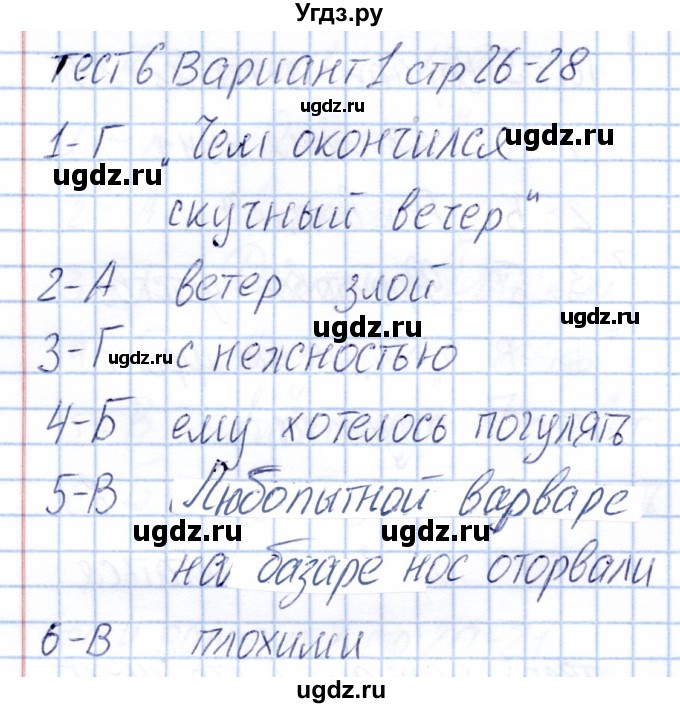 Угдз.ру
Тест 6 Вариант 1 стр 26-28
ugdz.ru
1-Г „Чем окончился
ugdz.ru ugdz.ru
скучный вечер“
2-А ветер злой
ugdz.ru ugdz.ru
3-Г с нежностью
ugdz.ru
4-Б ему хотелось погулять
5-В Любопытной варваре
ugdz.ru ugdz.ru
на базаре нос оторвали
6-В плохими
ugdz.ru
ugdz.ru